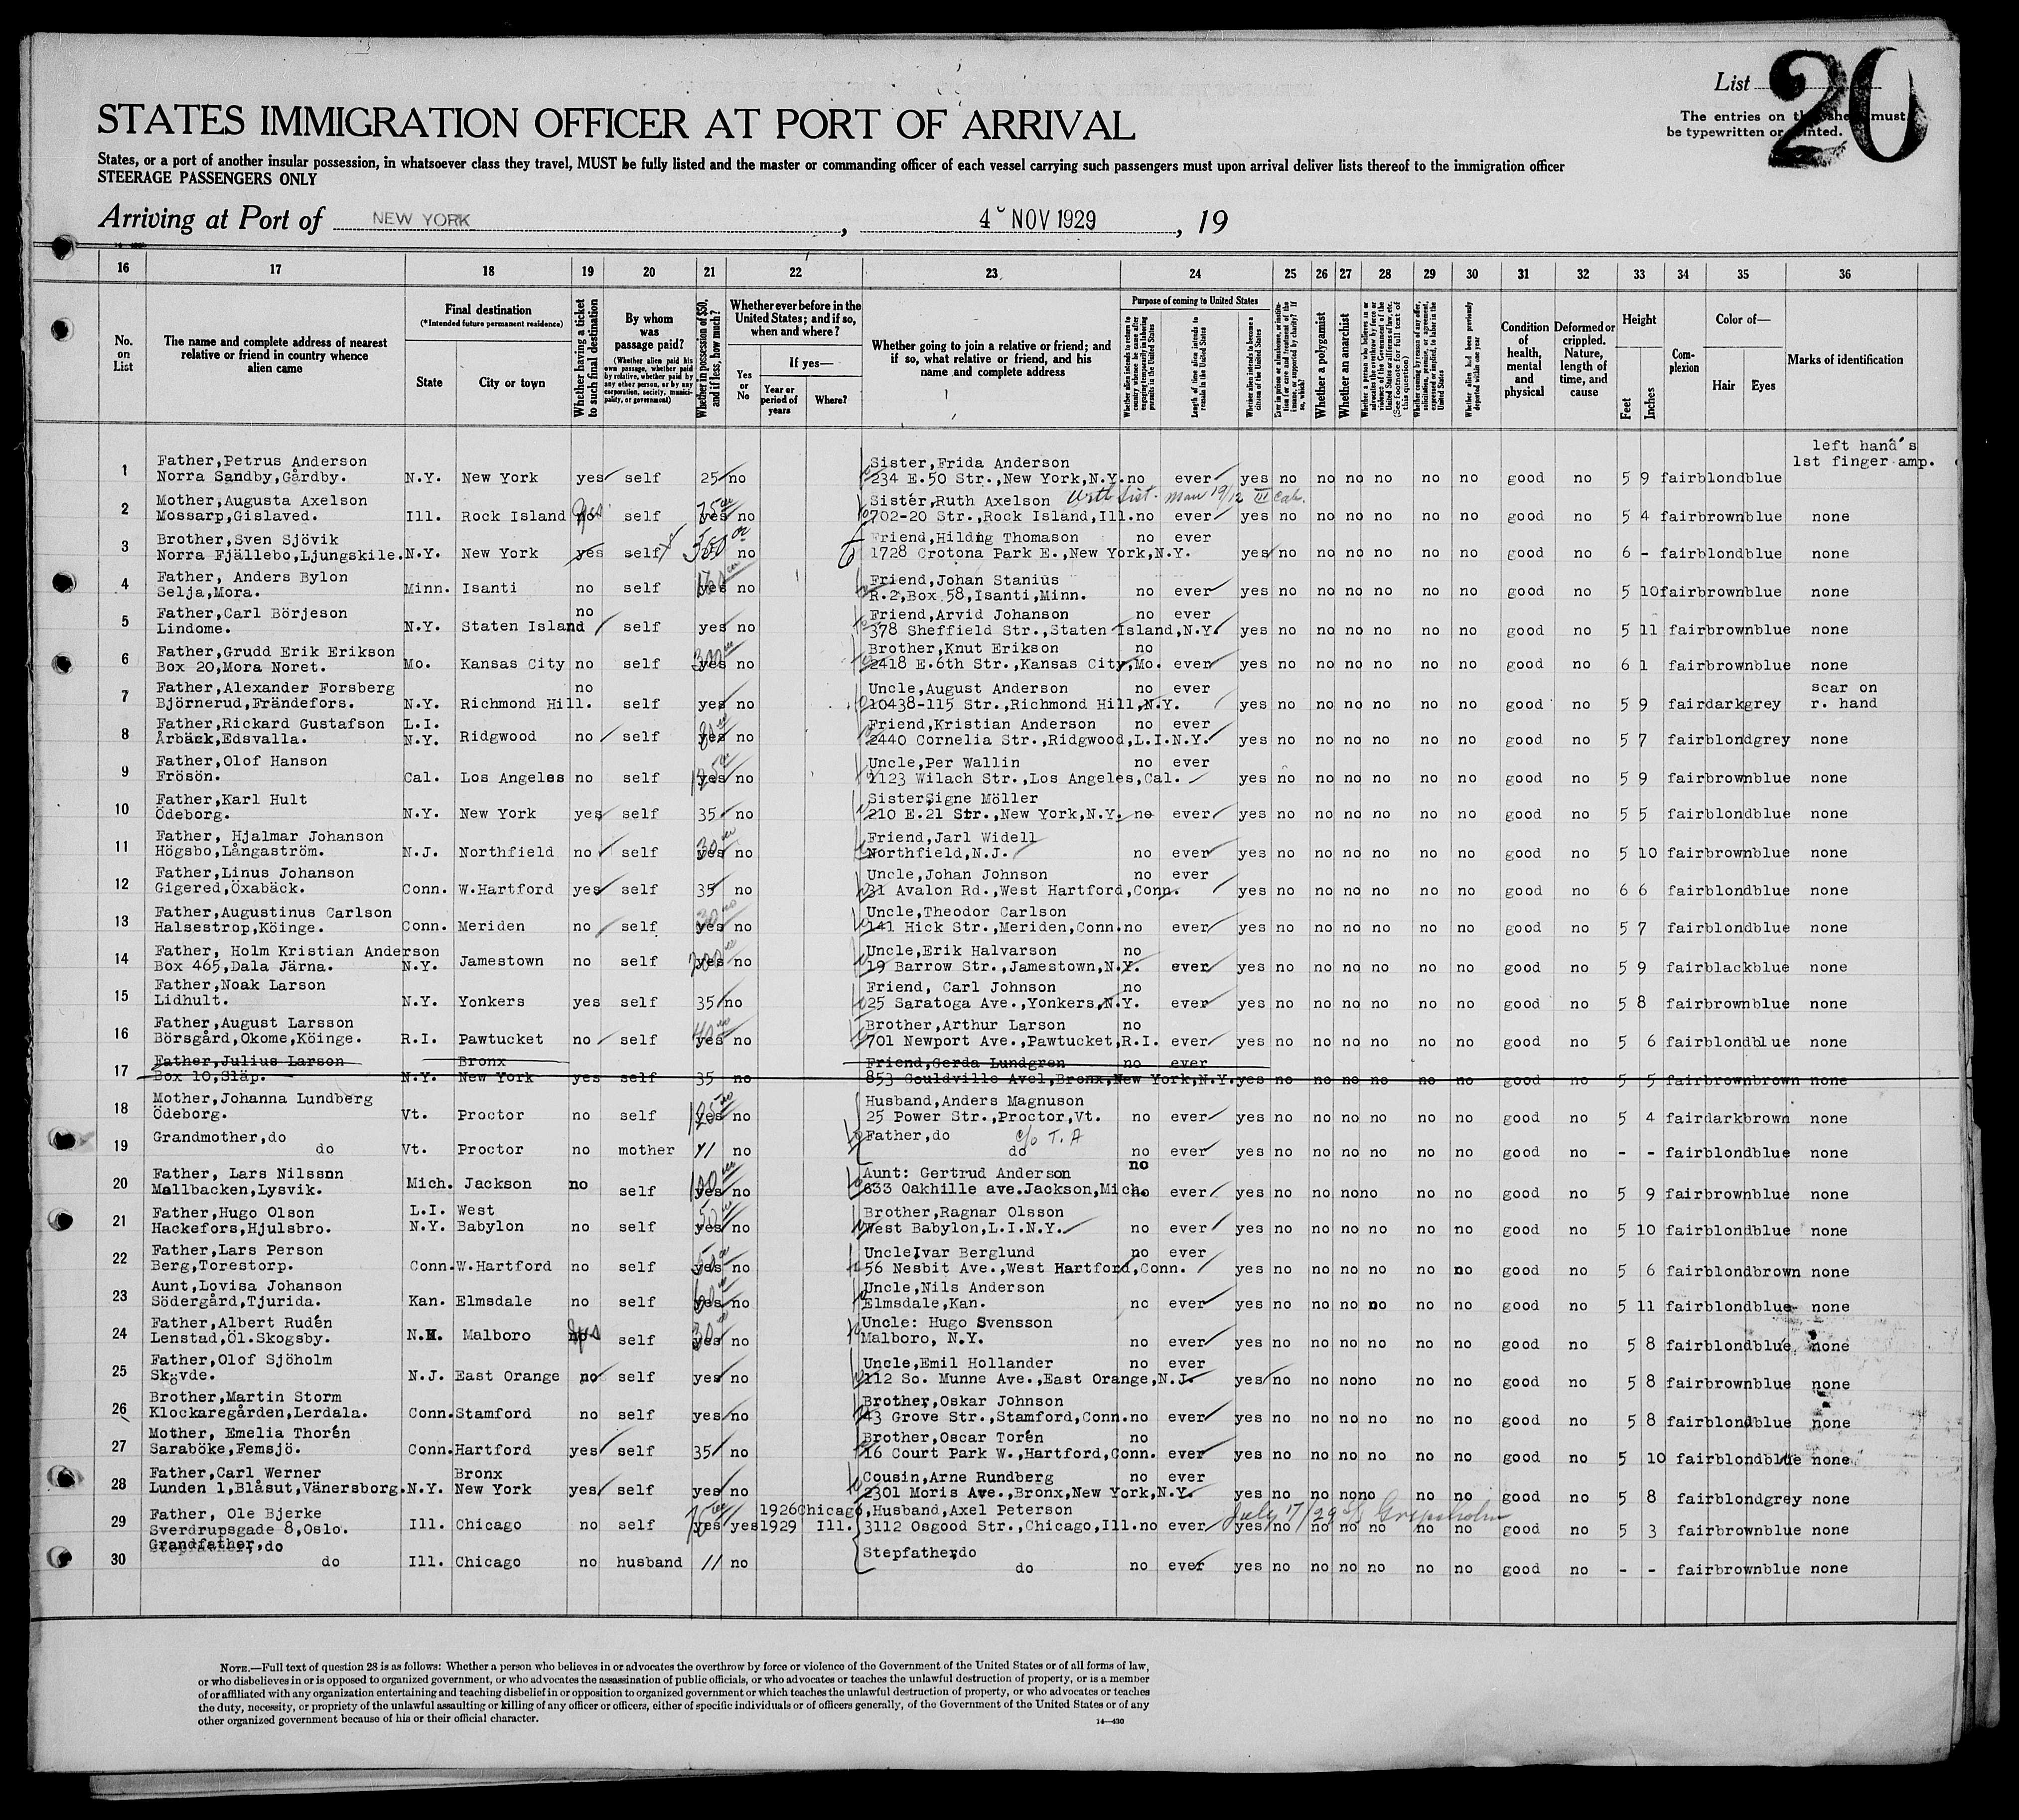 List 20
The entries on this sheet must
be typewritten or printed.
STATES IMMIGRATION OFFICER AT PORT OF ARRIVAL
States, or a port of another insular possession, in whatsoever class they travel, MUST be fully listed and the master or commanding officer of each vessel carrying such passengers must upon arrival deliver lists thereof to the immigration officer
STEERAGE PASSENGERS ONLY
Arriving at Port of NEW YORK, 4 NOV 1929, 19
16 17 18 19 20 21 22 23 24 25 26 27 28 29 30 31 32 33 34 35 36
No. on List
The name and complete address of nearest relative or friend in country whence alien came
Final destination
(*Intended future permanent residence)
State
City or town
Whether having a ticket to such final destination
By whom was passage paid?
(Whether alien paid his own passage, whether paid by relative, whether paid by any other person, or by any corporation, society, municipality, or government)
Whether in possession of $50, and if less, how much?
Whether ever before in the United States; and if so, when and where?
Yes or No
If yes—
Year or period of years
Where?
Whether going to join a relative or friend; and if so, what relative or friend, and his name and complete address
Purpose of coming to United States
Whether alien intends to return to country whence he came after engaging temporarily in laboring pursuits in the United States
Length of time alien intends to remain in the United States
Whether alien intends to become a citizen of the United States
Ever in prison or almshouse, or institution for care and treatment of the insane, or supported by charity? If so, which?
Whether a polygamist
Whether an anarchist
Whether a person who believes in or advocates the overthrow by force or violence of the Government of the United States or all forms of law, etc. (See footnote for full text of this question)
Whether coming by reason of any offer, solicitation, promise, or agreement, expressed or implied, to labor in the United States
Whether alien had been previously deported within one year
Condition of health, mental and physical
Deformed or crippled. Nature, length of time, and cause
Height
Feet
Inches
Complexion
Color of—
Hair
Eyes
Marks of identification
left hand's
1st finger amp.
1 Father,Petrus Anderson Sister,Frida Anderson
Norra Sandby,Gårdby. N.Y. New York yes self 25 no 234 E.50 Str.,New York,N.Y. no ever yes no no no no no no good no 5 9 fair blond blue
2 Mother,Augusta Axelson Sister,Ruth Axelson
Mossarp,Gislaved. Ill. Rock Island yes self 75 yes no 702-20 Str.,Rock Island,Ill. no ever yes no no no no no no good no 5 4 fair brown blue none
3 Brother,Sven Sjövik Friend,Hilding Thomason no ever
Norra Fjällebo,Ljungskile. N.Y. New York yes self 500 no 1728 Crotona Park E.,New York,N.Y. yes no no no no no no good no 6 - fair blond blue none
4 Father, Anders Bylon Friend,Johan Stanius
Selja,Mora. Minn. Isanti no self yes no R.2,Box 58,Isanti,Minn. no ever yes no no no no no no good no 5 10 fair brown blue none
5 Father,Carl Börjeson no Friend,Arvid Johanson no ever
Lindome. N.Y. Staten Island self yes no 378 Sheffield Str.,Staten Island,N.Y. yes no no no no no no good no 5 11 fair brown blue none
6 Father,Grudd Erik Erikson Brother,Knut Erikson no
Box 20,Mora Noret. Mo. Kansas City no self 300 yes no 2418 E.6th Str.,Kansas City,Mo. ever yes no no no no no no good no 6 1 fair brown blue none
7 Father,Alexander Forsberg no Uncle,August Anderson no ever scar on
Björnerud,Frändefors. N.Y. Richmond Hill. self yes no 10438-115 Str.,Richmond Hill,N.Y. yes no no no no no no good no 5 9 fair dark grey r. hand
8 Father,Rickard Gustafson L.I. Friend,Kristian Anderson no ever
Årbäck,Edsvalla. N.Y. Ridgwood no self 80 yes no 2440 Cornelia Str.,Ridgwood,L.I.N.Y. yes no no no no no no good no 5 7 fair blond grey none
9 Father,Olof Hanson Uncle,Per Wallin no ever
Frösön. Cal. Los Angeles no self 125 yes no 1123 Wilach Str.,Los Angeles,Cal. yes no no no no no no good no 5 9 fair brown blue none
10 Father,Karl Hult Sister,Signe Möller
Ödeborg. N.Y. New York yes self 35 no 210 E.21 Str.,New York,N.Y. no ever yes no no no no no no good no 5 5 fair blond blue none
11 Father, Hjalmar Johanson Friend,Jarl Widell
Högsbo,Långaström. N.J. Northfield no self 30 yes no Northfield,N.J. no ever yes no no no no no no good no 5 10 fair brown blue none
12 Father,Linus Johanson Uncle,Johan Johnson no ever
Gigered,Öxabäck. Conn. W.Hartford yes self 35 no 31 Avalon Rd.,West Hartford,Conn. yes no no no no no no good no 6 6 fair blond blue none
13 Father,Augustinus Carlson Uncle,Theodor Carlson
Halsestrop,Köinge. Conn. Meriden no self 30 yes no 141 Hick Str.,Meriden,Conn. no ever yes no no no no no no good no 5 7 fair blond blue none
14 Father, Holm Kristian Anderson Uncle,Erik Halvarson no
Box 465,Dala Järna. N.Y. Jamestown no self 200 yes no 19 Barrow Str.,Jamestown,N.Y. ever yes no no no no no no good no 5 9 fair black blue none
15 Father,Noak Larson Friend, Carl Johnson no
Lidhult. N.Y. Yonkers yes self 35 no 25 Saratoga Ave.,Yonkers,N.Y. ever yes no no no no no no good no 5 8 fair brown blue none
16 Father,August Larsson Brother,Arthur Larson no
Börsgård,Okome,Köinge. R.I. Pawtucket no self 40 yes no 701 Newport Ave.,Pawtucket,R.I. ever yes no no no no no no good no 5 6 fair blond blue none
17 Father,Julius Larson Bronx Friend,Gerda Lundgren no ever
Box 10,Släp. N.Y. New York yes self 35 no 853 Gouldville Avel,Bronx,New York,N.Y. yes no no no no no no good no 5 5 fair brown brown none
18 Mother,Johanna Lundberg Husband,Anders Magnuson
Ödeborg. Vt. Proctor no self 125 yes no 25 Power Str.,Proctor,Vt. no ever yes no no no no no no good no 5 4 fair dark brown none
19 Grandmother,do Father,do c/o T. A
do Vt. Proctor no mother 11 no do no ever yes no no no no no no good no - - fair blond blue none
20 Father, Lars Nilsson Aunt: Gertrud Anderson no
Mallbacken,Lysvik. Mich. Jackson no self 100 yes no 633 Oakhille ave.Jackson,Mich. no ever yes no no no no no no good no 5 9 fair brown blue none
21 Father,Hugo Olson L.I. West Brother,Ragnar Olsson
Hackefors,Hjulsbro. N.Y. Babylon no self 50 yes no West Babylon,L.I.N.Y. no ever yes no no no no no no good no 5 10 fair blond blue none
22 Father,Lars Person Uncle Ivar Berglund no ever
Berg,Torestorp. Conn. W.Hartford no self 50 yes no 56 Nesbit Ave.,West Hartford,Conn. yes no no no no no no good no 5 6 fair blond brown none
23 Aunt,Lovisa Johanson Uncle,Nils Anderson
Södergård,Tjurida. Kan. Elmsdale no self 60 yes no Elmsdale,Kan. no ever yes no no no no no no good no 5 11 fair blond blue none
24 Father,Albert Rudén Uncle: Hugo Svensson
Lenstad,Öl.Skogsby. N.H. Malboro yes self 30 yes no Malboro, N.Y. no ever yes no no no no no no good no 5 8 fair blond blue none
25 Father,Olof Sjöholm Uncle,Emil Hollander no ever
Skövde. N.J. East Orange no self yes no 112 So. Munne Ave.,East Orange,N.J. yes no no no no no no good no 5 8 fair brown blue none
26 Brother,Martin Storm Brother,Oskar Johnson
Klockaregården,Lerdala. Conn. Stamford no self yes no 43 Grove Str.,Stamford,Conn. no ever yes no no no no no no good no 5 8 fair blond blue none
27 Mother, Emelia Thorén Brother,Oscar Torén no
Saraböke,Femsjö. Conn. Hartford yes self 35 no 16 Court Park W.,Hartford,Conn. ever yes no no no no no no good no 5 10 fair blond blue none
28 Father,Carl Werner Bronx Cousin,Arne Rundberg no ever
Lunden 1,Blåsut,Vänersborg. N.Y. New York yes self yes no 2301 Moris Ave.,Bronx,New York,N.Y. yes no no no no no no good no 5 8 fair blond grey none
29 Father, Ole Bjerke 1926 Chicago, Husband,Axel Peterson July 17/29 S/S Gripsholm
Sverdrupsgade 8,Oslo. Ill. Chicago no self yes yes 1929 Ill. 3112 Osgood Str.,Chicago,Ill. no ever yes no no no no no no good no 5 3 fair brown blue none
30 Grandfather, do Stepfather,do
do Ill. Chicago no husband 11 no do no ever yes no no no no no no good no - - fair brown blue none
NOTE.—Full text of question 28 is as follows: Whether a person who believes in or advocates the overthrow by force or violence of the Government of the United States or of all forms of law,
or who disbelieves in or is opposed to organized government, or who advocates the assassination of public officials, or who advocates or teaches the unlawful destruction of property, or is a member
of or affiliated with any organization entertaining and teaching disbelief in or opposition to organized government or which teaches the unlawful destruction of property, or who advocates or teaches
the duty, necessity, or propriety of the unlawful assaulting or killing of any officer or officers, either of specific individuals or of officers generally, of the Government of the United States or of any
other organized government because of his or their official character.
14—430